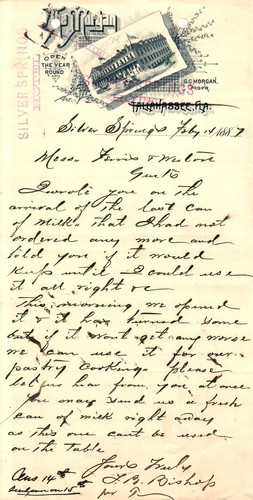 SILVER SPRINGS
HOTEL
OPEN
THE YEAR
ROUND
G.C. MORGAN,
PROPR.
TALLAHASSEE, FLA.
Silver Springs Feby 14 1887
Mess. Ferris &
Gents
I wrote you on the
arrival of the last can
of Milk that I had not
ordered any more and
told you if it would
keep until I could use
it all right &c
This morning we opened
it & it has turned some
but if it wont get any worse
we can use it for our
pastry Cooking please
let us hear from you at once
You may send us a fresh
can of milk right away
as this one cant be used
on the Table
Yours Truly
F.B. Bishop
per
Ans 14th